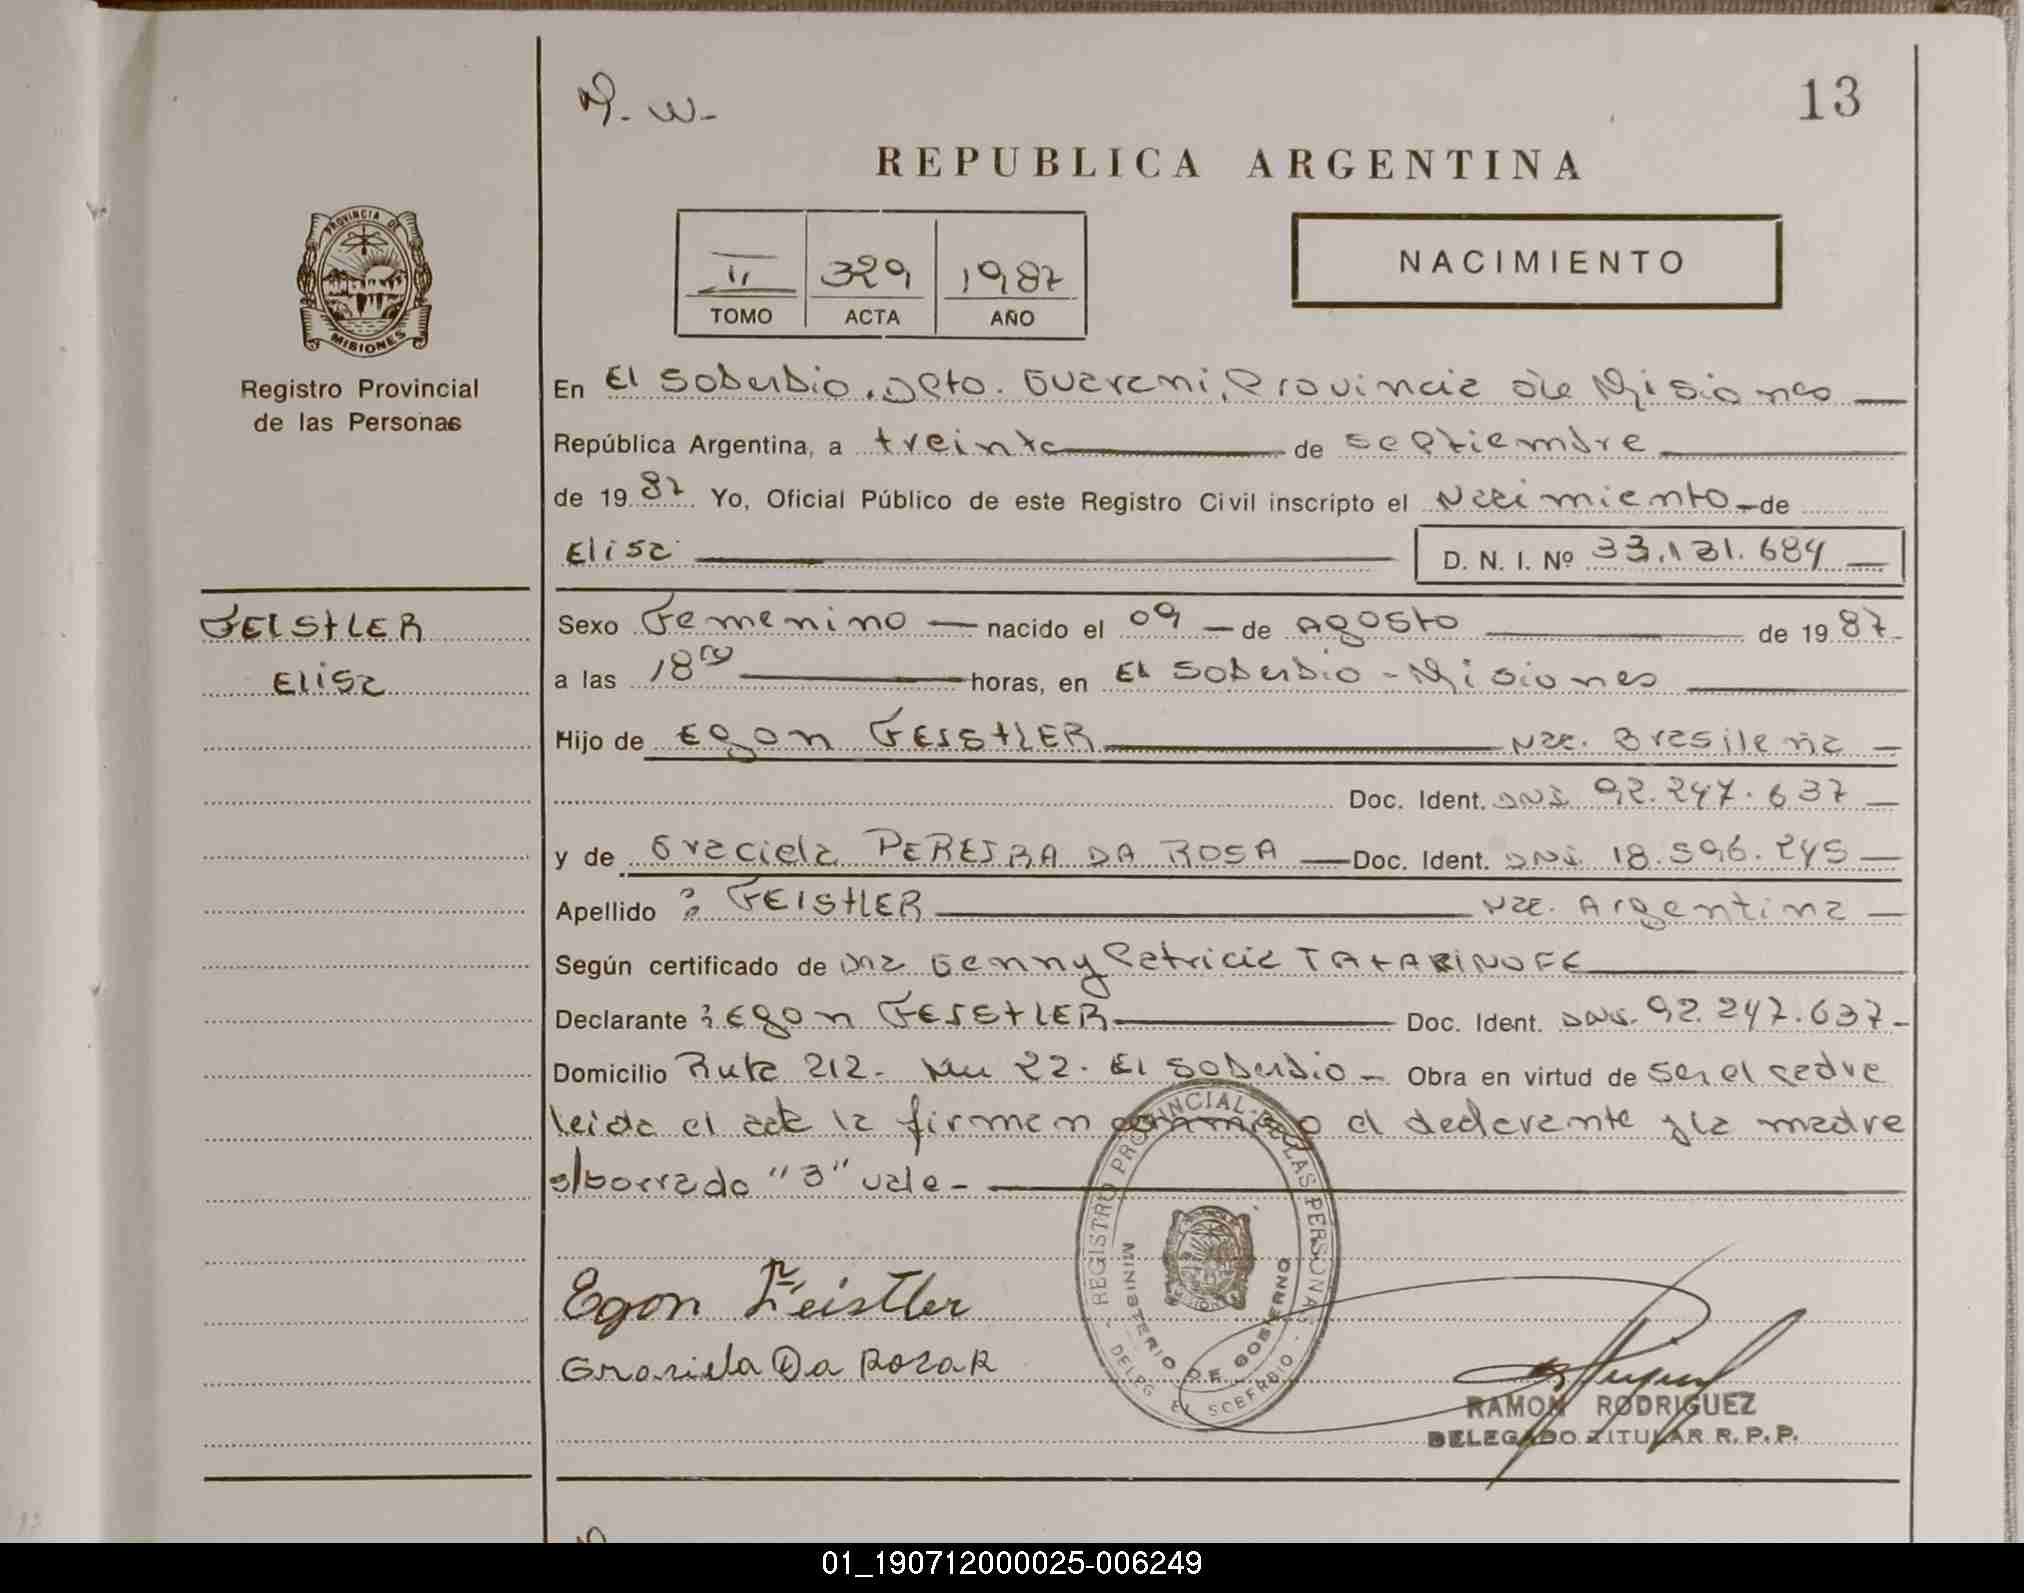 M. W.-
13
REPUBLICA ARGENTINA
II 329 1987
TOMO ACTA AÑO
NACIMIENTO
PROVINCIA DE
MISIONES
Registro Provincial
de las Personas
En El Soberbio, Dpto. Guarani, Provincia de Misiones
República Argentina, a treinta de septiembre
de 1987 Yo, Oficial Público de este Registro Civil inscripto el Nacimiento de
Elisa D. N. I. Nº 33.131.684
FEISTLER
Elisa
Sexo Femenino nacido el 09 de Agosto de 1987
a las 18 horas, en El Soberbio - Misiones
Hijo de Egon FEISTLER Nac. Brasileña
Doc. Ident. DNI. 92.247.637
y de Graciela PEREIRA DA ROSA Doc. Ident. DNI. 18.596.245
Apellido : FEISTLER Nac. Argentina
Según certificado de Dra Genny Patricia TATARINOFF
Declarante : Egon FEISTLER Doc. Ident. DNI. 92.247.637
Domicilio Ruta 212. Km 22. El Soberbio - Obra en virtud de ser el padre
leida el acta la firman conmigo el declarante y la madre
s/borrado "3" vale -
Egon Feistler
Grasiela Da Rozar
REGISTRO PROVINCIAL DE LAS PERSONAS
MINISTERIO DE GOBIERNO
DELEG. EL SOBERBIO
RAMON RODRIGUEZ
DELEGADO TITULAR R.P.P.
01_190712000025-006249